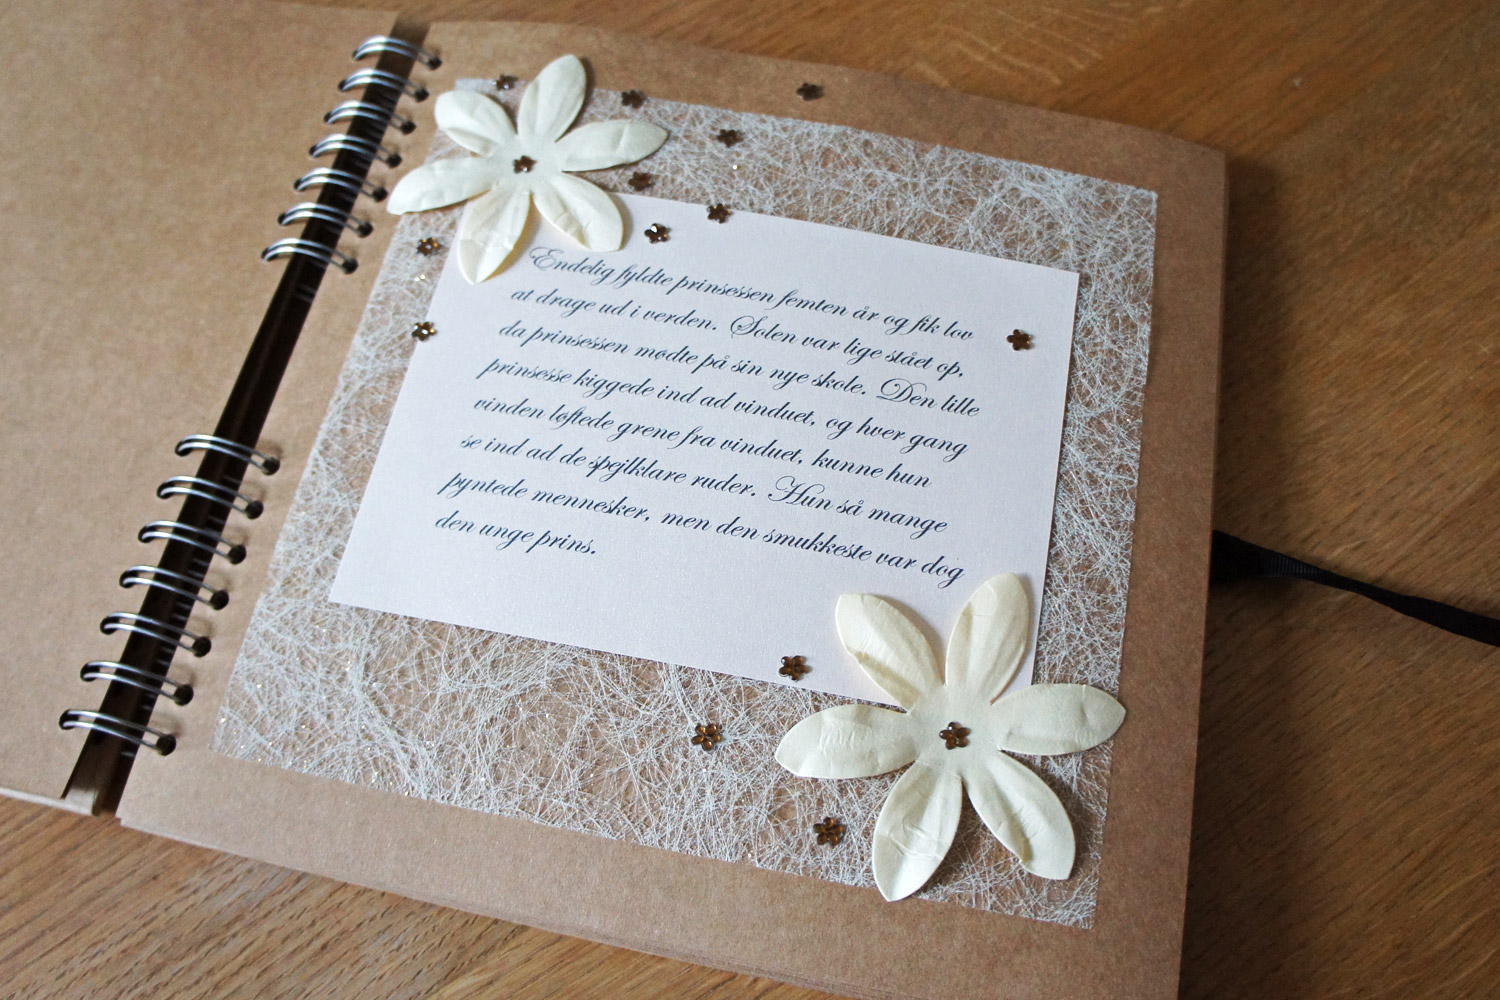 Endelig fyldte prinsessen femten år og fik lov
at drage ud i verden. Solen var lige stået op,
da prinsessen mødte på sin nye skole. Den lille
prinsesse kiggede ind ad vinduet, og hver gang
vinden løftede grene fra vinduet, kunne hun
se ind ad de spejlklare ruder. Hun så mange
pyntede mennesker, men den smukkeste var dog
den unge prins.